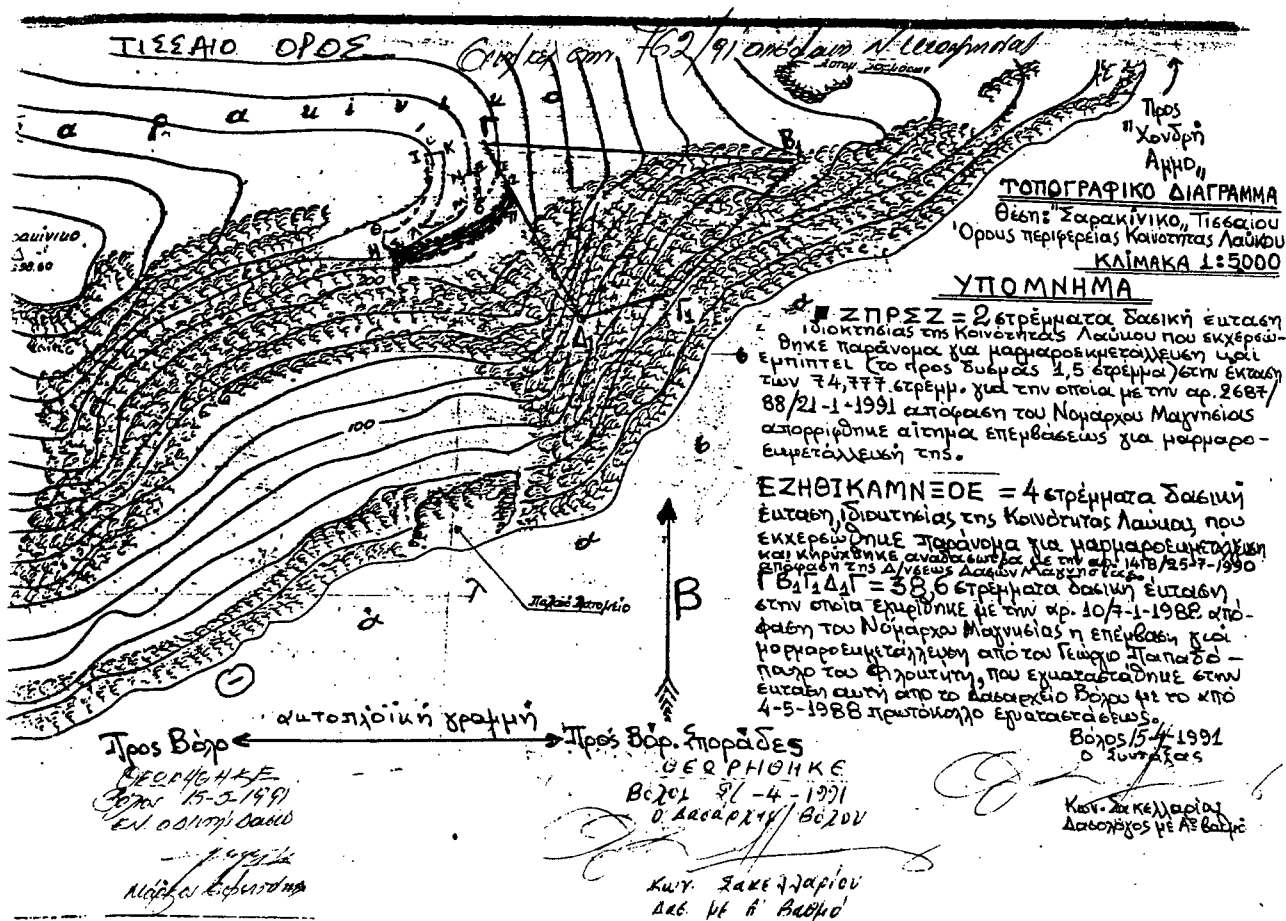 ΤΙΣΣΑΙΟ ΟΡΟΣ
762/91
α ρ α κ ι ν ι κ ο
Προς
"Χονδρή
Άμμο"
ΤΟΠΟΓΡΑΦΙΚΟ ΔΙΑΓΡΑΜΜΑ
Θέση: "Σαρακίνικο" Τισσαίου
Όρους περιφερείας Κοινότητας Λαύκου
ΚΛΙΜΑΚΑ 1:5000
ΥΠΟΜΝΗΜΑ
ΖΠΡΣΖ = 2 στρέμματα δασική έκταση
ιδιοκτησίας της Κοινότητας Λαύκου που εκχερσώ-
θηκε παράνομα για μαρμαροεκμετάλλευση και
εμπίπτει (το προς δυσμάς 1,5 στρέμμα) στην έκταση
των 74,777 στρέμμ. για την οποία με την αρ. 2687/
88/21-1-1991 απόφαση του Νομάρχου Μαγνησίας
απορρίφθηκε αίτημα επεμβάσεως για μαρμαρο-
εκμετάλλευσή της.
ΕΖΗΘΙΚΛΜΝΞΟΕ = 4 στρέμματα δασική
έκταση, ιδιοκτησίας της Κοινότητας Λαύκου, που
εκχερσώθηκε παράνομα για μαρμαροεκμετάλλευση
και κηρύχθηκε αναδασωτέα με την αρ. 1418/25-7-1990
απόφαση της Δ/νσεως Δασών Μαγνησίας.
ΓΒ₁Γ₁Δ₁Γ = 38,6 στρέμματα δασική έκταση
στην οποία εγκρίθηκε με την αρ. 10/7-1-1988 από-
φαση του Νομάρχου Μαγνησίας η επέμβαση για
μαρμαροεκμετάλλευση από τον Γεώργιο Παπαδό-
πουλο του Φιλοκτήτη, που εγκαταστάθηκε στην
έκταση αυτή από το Δασαρχείο Βόλου με το από
4-5-1988 πρωτόκολλο εγκαταστάσεως.
Βόλος 15-4-1991
Ο Συντάξας
Κων. Σακελλαρίου
Δασολόγος με Α΄ βαθμό
Β₁
Γ
Γ₁
Δ₁
Ι
Κ
Θ
Η
200
100
Παλαιό Λατομείο
Β
ακτοπλοϊκή γραμμή
Προς Βόλο
Προς Βόρ. Σποράδες
ΘΕΩΡΗΘΗΚΕ
Βόλος 15-5-1991
ΘΕΩΡΗΘΗΚΕ
-4-1991
Ο Δασάρχης Βόλου
Κων. Σακελλαρίου
Δασ. με Α' Βαθμό